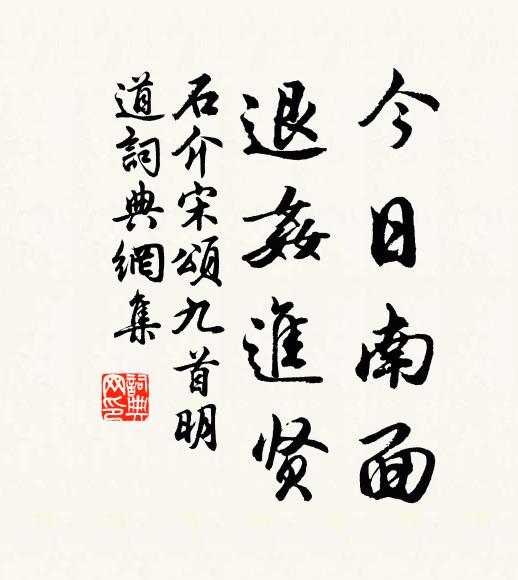 今日南面
退姦進贤
石介宋頌九首明
道詞典網集
詞典网印